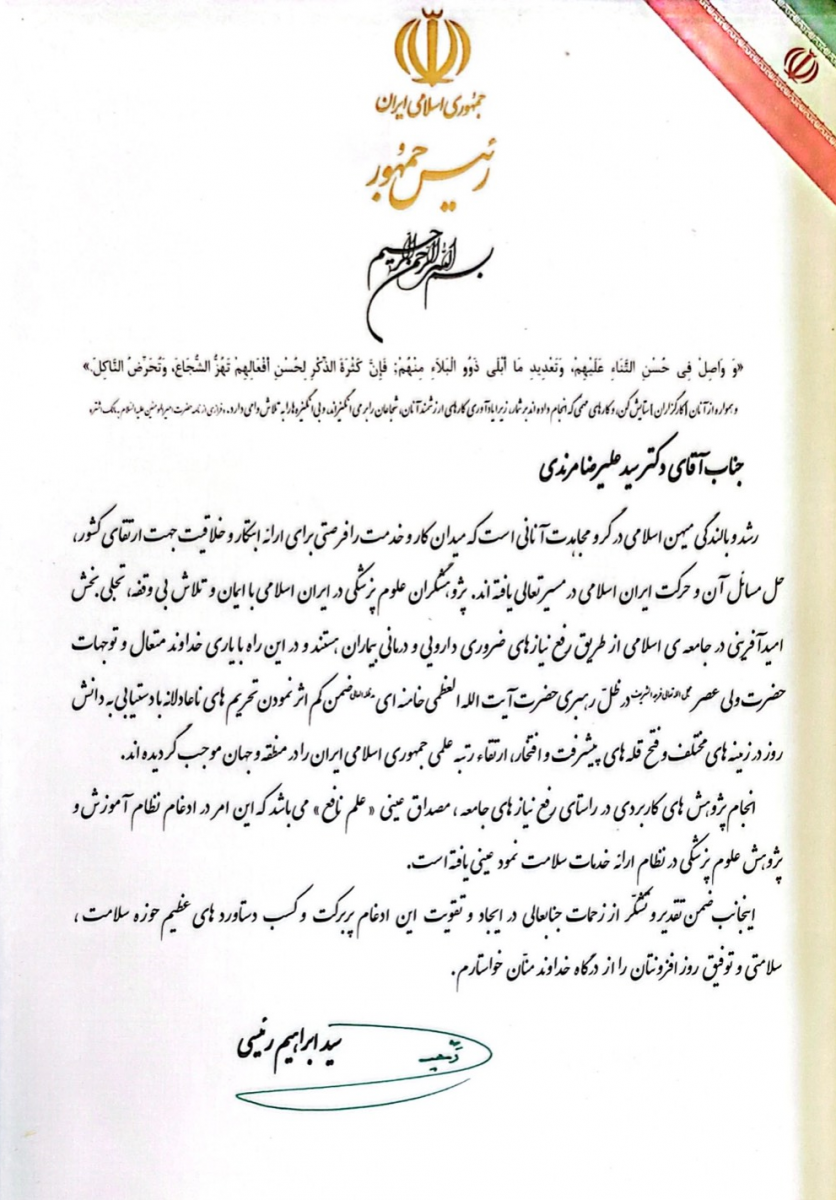 جمهوری اسلامی ایران
رئیس جمهور
بسم الله الرحمن الرحیم
«وَ وَاصِلْ فِی حُسْنِ الثَّنَاءِ عَلَیْهِمْ، وَتَعْدِیدِ مَا أَبْلَی ذَوُو الْبَلَاءِ مِنْهُمْ؛ فَإِنَّ کَثْرَةَ الذِّکْرِ لِحُسْنِ أَفْعَالِهِمْ تَهُزُّ الشُّجَاعَ، وَتُحَرِّضُ النَّاکِلَ.»
و همواره از آنان [کارگزاران] ستایش کن، و کارهای مهمی که انجام داده اند بر شمار، زیرا یادآوری کارهای ارزشمند آنان، شجاعان را بر می انگیزاند، و بی انگیزه ها را به تلاش وامی دارد. «فرازی از نامه حضرت امیرالمومنین علیه السلام به مالک اشتر»
جناب آقای دکتر سید علیرضا مرندی
رشد و بالندگی میهن اسلامی در گرو مجاهدت آنانی است که میدان کار و خدمت را فرصتی برای ارائه ابتکار و خلاقیت جهت ارتقای کشور،
حل مسائل آن و حرکت ایران اسلامی در مسیر تعالی یافته اند. پژوهشگران علوم پزشکی در ایران اسلامی با ایمان و تلاش بی وقفه، تجلی بخش
امیدآفرینی در جامعه ی اسلامی از طریق رفع نیازهای ضروری دارویی و درمانی بیماران هستند و در این راه با یاری خداوند متعال و توجهات
حضرت ولی عصر عجل الله تعالی فرجه الشریف در ظلّ رهبری حضرت آیت الله العظمی خامنه ای مدظله العالی ضمن کم اثر نمودن تحریم های ناعادلانه با دستیابی به دانش
روز در زمینه های مختلف و فتح قله های پیشرفت و افتخار، ارتقاء رتبه علمی جمهوری اسلامی ایران را در منطقه و جهان موجب گردیده اند.
انجام پژوهش های کاربردی در راستای رفع نیازهای جامعه، مصداق عینی «علم نافع» می باشد که این امر در ادغام نظام آموزش و
پژوهش علوم پزشکی در نظام ارائه خدمات سلامت نمود عینی یافته است.
اینجانب ضمن تقدیر و تشکّر از زحمات جنابعالی در ایجاد و تقویت این ادغام پربرکت و کسب دستاوردهای عظیم حوزه سلامت،
سلامتی و توفیق روز افزونتان را از درگاه خداوند منّان خواستارم.
سید ابراهیم رئیسی